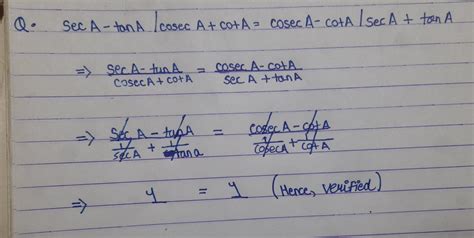 Q. secA - tanA / cosecA + cotA = cosecA - cotA / secA + tanA
⇒ secA - tanA / cosecA + cotA = cosecA - cotA / secA + tanA
⇒ secA - tanA / 1/secA + 1/tana = cosecA - cotA / 1/cosecA + 1/cotA
⇒ 1 = 1 (Hence, verified)